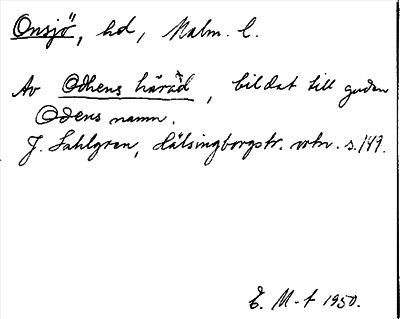 Onsjö, hd, Malm. l.
Av Odhens häräd, bildat till guden
Odens namn.
J. Sahlgren, Hälsingborgstr. ortn. s. 149.
E. M-t 1950.